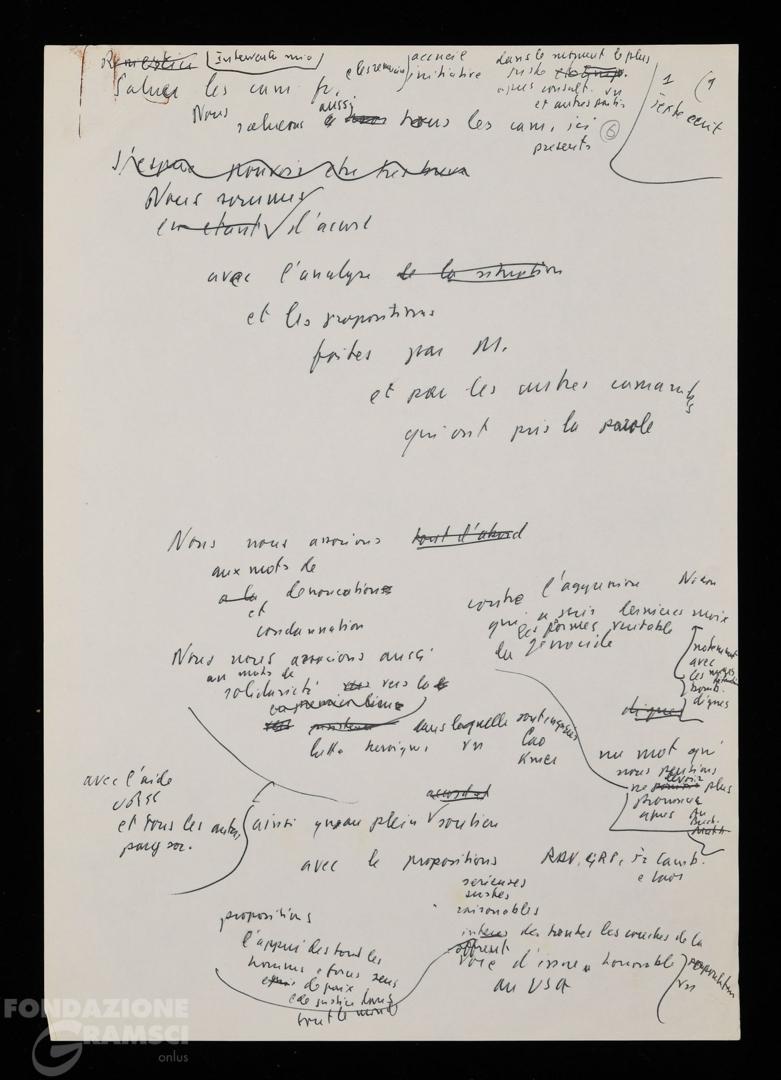 Intervento mio
Saluer les cam. fr. e les remercier accueil
initiative
dans le moment le plus
juste
après consult. VN
et autres partis
1 (1
texte écrit
Nous aussi
saluons tous les cam. ici
présents
6
J'espère pouvoir être très bref
Nous sommes
en étant d'accord
avec l'analyse de la situation
et les propositions
faites par M.
et par les autres camarades
qui ont pris la parole
Nous nous associons tout d'abord
aux mots de
à la denonciation
et
condamnation
contre l'agression Nixon
qui a pris dernières mois
les formes véritable
du génocide
notamment
avec
les
bomb.
digues
Nous nous associons aussi
au mots de
solidarité vers la
lutte héroiques VN
dans laquelle sont engagés
Lao
Kmer
un mot qui
nous pensions
ne devoir plus
prononcer
après
avec l'aide
URSS
et tous les autres
pays soc.
ainsi qu'au plein soutien
avec le propositions RDV, GRP, Fr Camb.
e Laos
sérieuses
justes
raisonables
propositions
l'appui des tous les
hommes e forces
de paix
e de justice dans
tout le monde
des toutes les couches de la
population
VN
offrent
voie d'issue honorable
au USA
FONDAZIONE
GRAMSCI
onlus